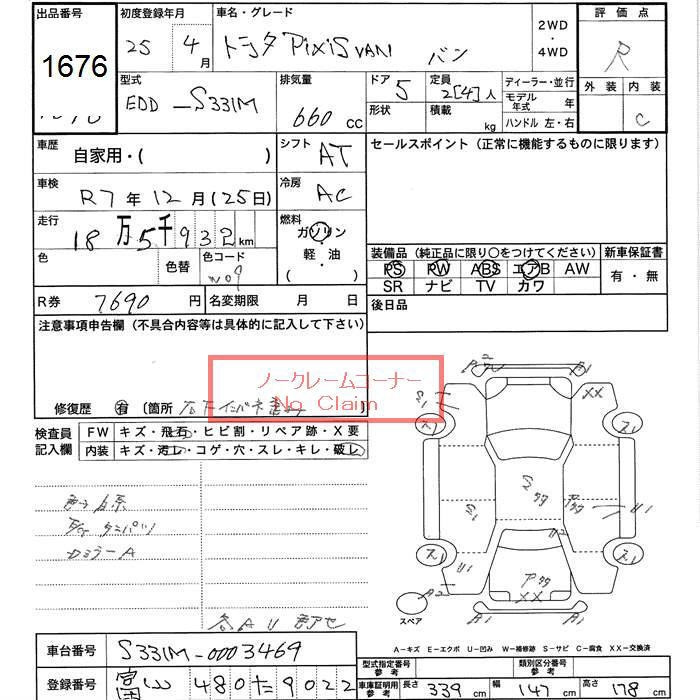 出品番号 初度登録年月 車名・グレード 2WD・4WD 評価点
1676 25年 4月 トヨタ PixiS VAN バン R
型式 排気量 ドア 定員 ディーラー・並行 外装 内装
EDD-S331M 660cc 5 2[4]人 モデル年式 年 C
形状 積載 kg ハンドル 左・右
車歴 自家用・( ) シフト AT セールスポイント (正常に機能するものに限ります)
車検 R7年12月(25日) 冷房 AC
走行 18万5千932km 燃料 ガソリン・軽・油( )
色 色替 色コード W09
装備品 (純正品に限り〇をつけてください) 新車保証書
PS PW ABS エアB AW 有・無
SR ナビ TV カワ
R券 7690円 名変期限 月 日 後日品
注意事項申告欄 (不具合内容等は具体的に記入して下さい)
ノークレームコーナー
No Claim
修復歴 有 〔箇所 〕
検査員記入欄 FW キズ・飛石・ヒビ割・リペア跡・X要
内装 キズ・汚レ・コゲ・穴・スレ・キレ・破レ
カミラーA
A2 A1
S1 XX
スリ スリ
S2 タタ
S1 アタタ U1 U1
U2
スリ スリ
A2 U1 アタタ XX
スペア A1 A1
各AU
A-キズ E-エクボ U-凹み W-補修跡 S-サビ C-腐食 XX-交換済
車台番号 S331M-0003469
型式指定番号 参考 類別区分番号 参考
登録番号 富山 480 た 9022
車庫証明用参考 長さ 339cm 幅 147cm 高さ 178cm